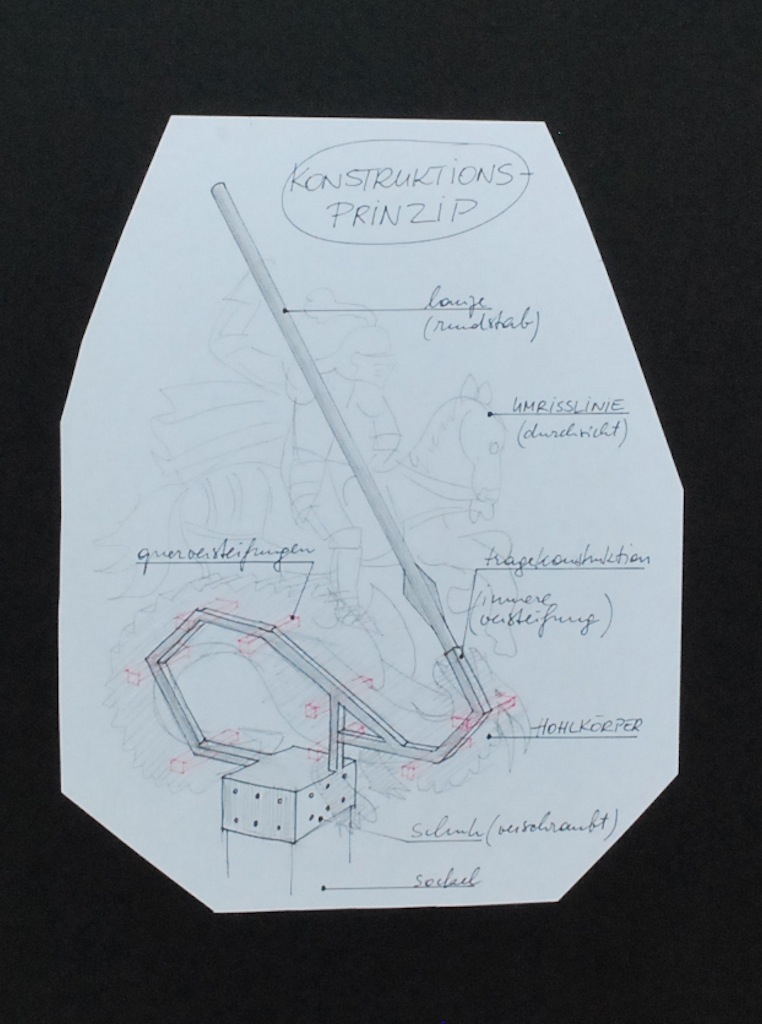 KONSTRUKTIONS-
PRINZIP
lanze
(rundstab)
UMRISSLINIE
(durchsicht)
querversteifungen
tragekonstruktion
(innere
versteifung)
HOHLKÖRPER
Schuh (verschraubt)
sockel